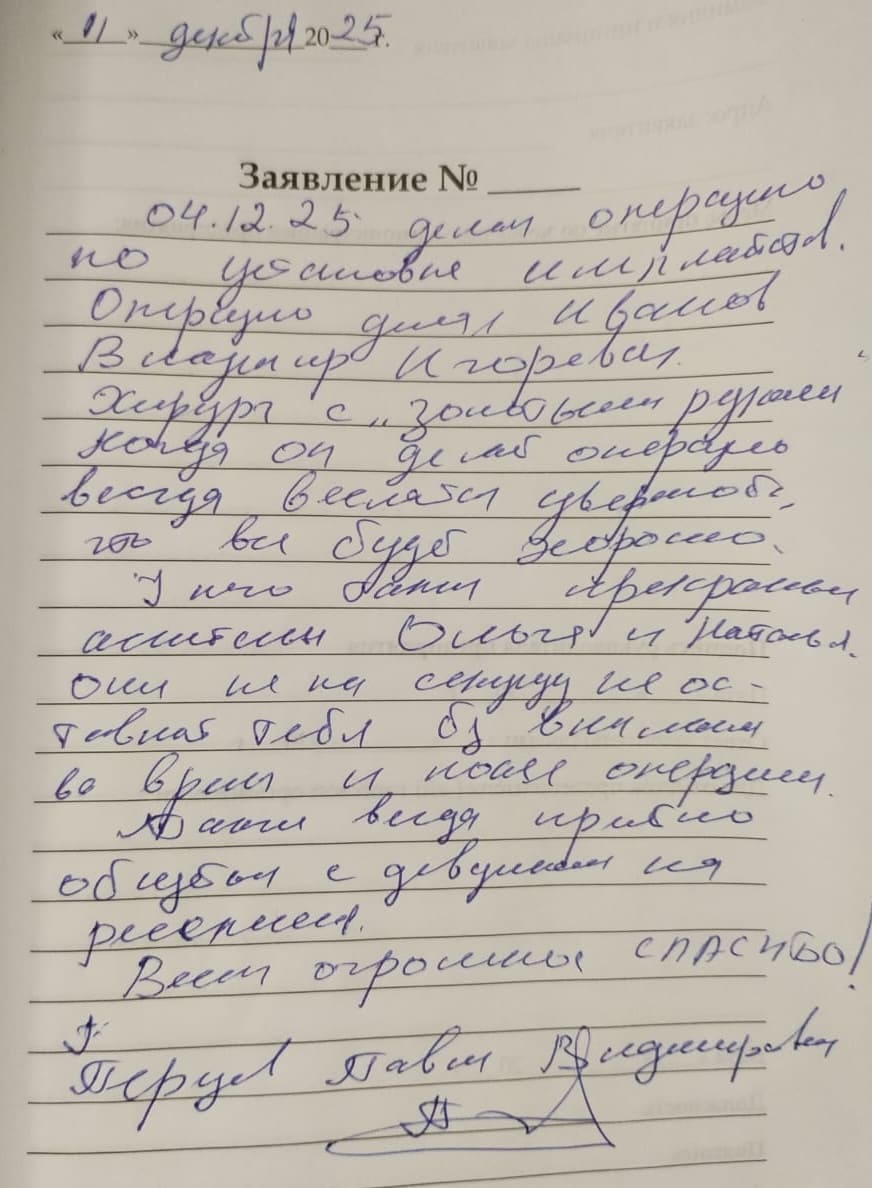 « 11 » декабря 2025 г.
Заявление №
04.12.25 делал операцию
по установке имплантов.
Операцию делал Иванов
Владимир Игоревич.
Хирург с „золотыми руками
когда он делает операцию
всегда вселяется уверенность,
что все будет хорошо.
У него также прекрасные
ассистенты Ольга и Наталья.
Они не на секунду не ос-
тавляют тебя без внимания
во время и после операции.
Также всегда приятно
общаться с девушками на
ресепшен.
Всем огромное СПАСИБО!
Павел Владимирович